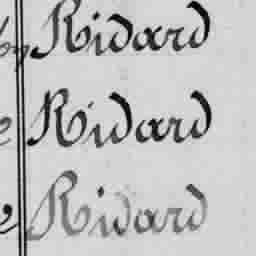 by Ridard
e Ridard
e Ridard